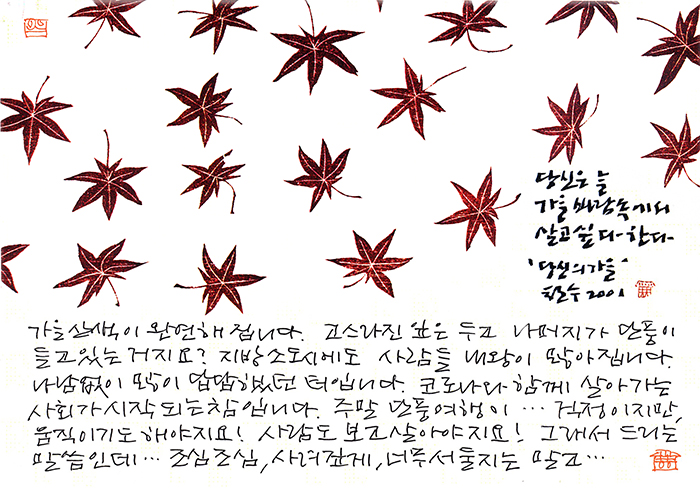 당신은 늘
가을 바람속에서
살고싶다-한다-
'당신의가을'
철수 2001
가을살색이 완연해 집니다. 고스라진 잎은 두고 나머지가 단풍이
들고있는 거지요? 지방소도시에도 사람들 내왕이 많아집니다.
나남없이 많이 답답했던 터입니다. 코로나와 함께 살아가는
사회가 시작 되는참입니다. 주말 단풍여행이 … 걱정이지만,
움직이기도 해야지요! 사람도 보고살아야지요! 그래서 드리는
말씀인데… 조심조심, 사려깊게, 너무서둘지는 말고…